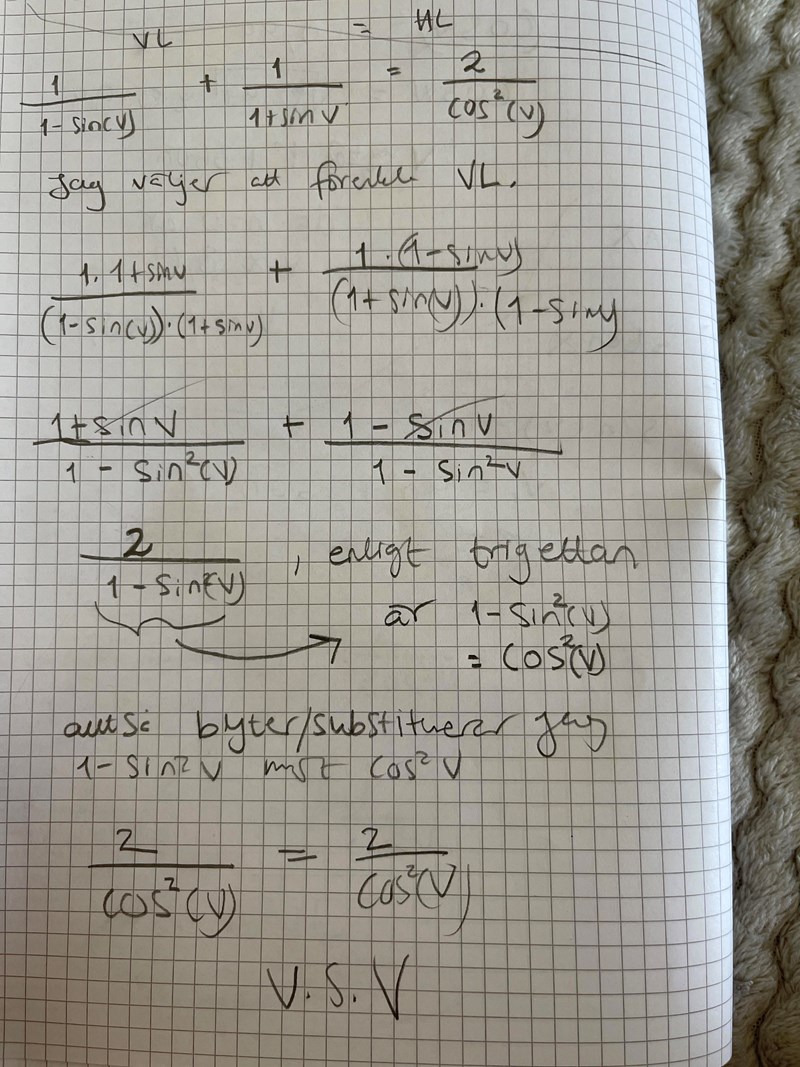 VL = HL
1/(1-sin(v)) + 1/(1+sin v) = 2/cos²(v)
Jag väljer att förenkla VL.
1·1+sin v/((1-sin(v))·(1+sin v)) + 1·(1-sin v)/((1+sin(v))·(1-sin v)
1+sin v/(1 - sin²(v)) + 1 - sin v/(1 - sin²v)
2/(1-sin²(v)) , enligt trigettan
är 1-sin²(v)
= cos²(v)
alltså byter/substituerar jag
1-sin²v mot cos²v
2/cos²(v) = 2/cos²(v)
V.S.V